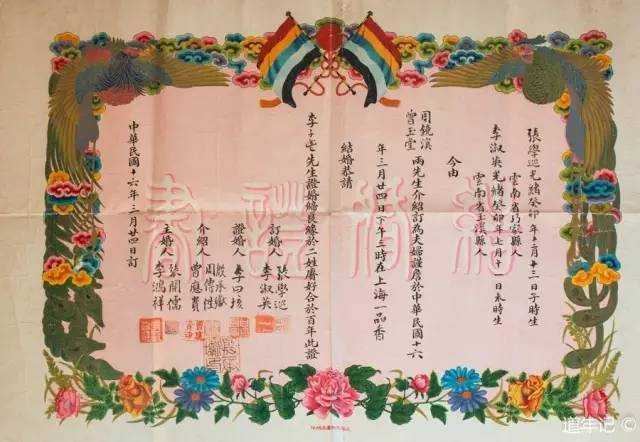 張學巡光緒癸卯年十二月廿三日子時生
雲南省巧家縣人
李淑英光緒癸卯年七月十一日未時生
雲南省玉溪縣人
今由
周鏡溪
曾玉堂
兩先生介紹訂為夫婦謹詹於中華民國十六
年三月廿四日下午三時在上海一品香
結婚恭請
李子壱先生證婚締良緣於二姓賡好合於百年此證
訂婚人 張學巡
李淑英
證婚人 李四垓
介紹人 周傳性
曾應貴
主婚人 張開儒
李鴻祥
中華民國十六年三月廿四日訂
結婚證書
道年记